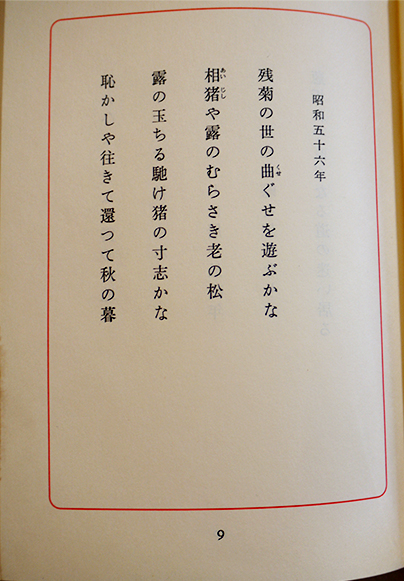 昭和五十六年
残菊の世の曲ぐせを遊ぶかな
相猪や露のむらさき老の松
露の玉ちる馳け猪の寸志かな
恥かしや往きて還つて秋の暮
9